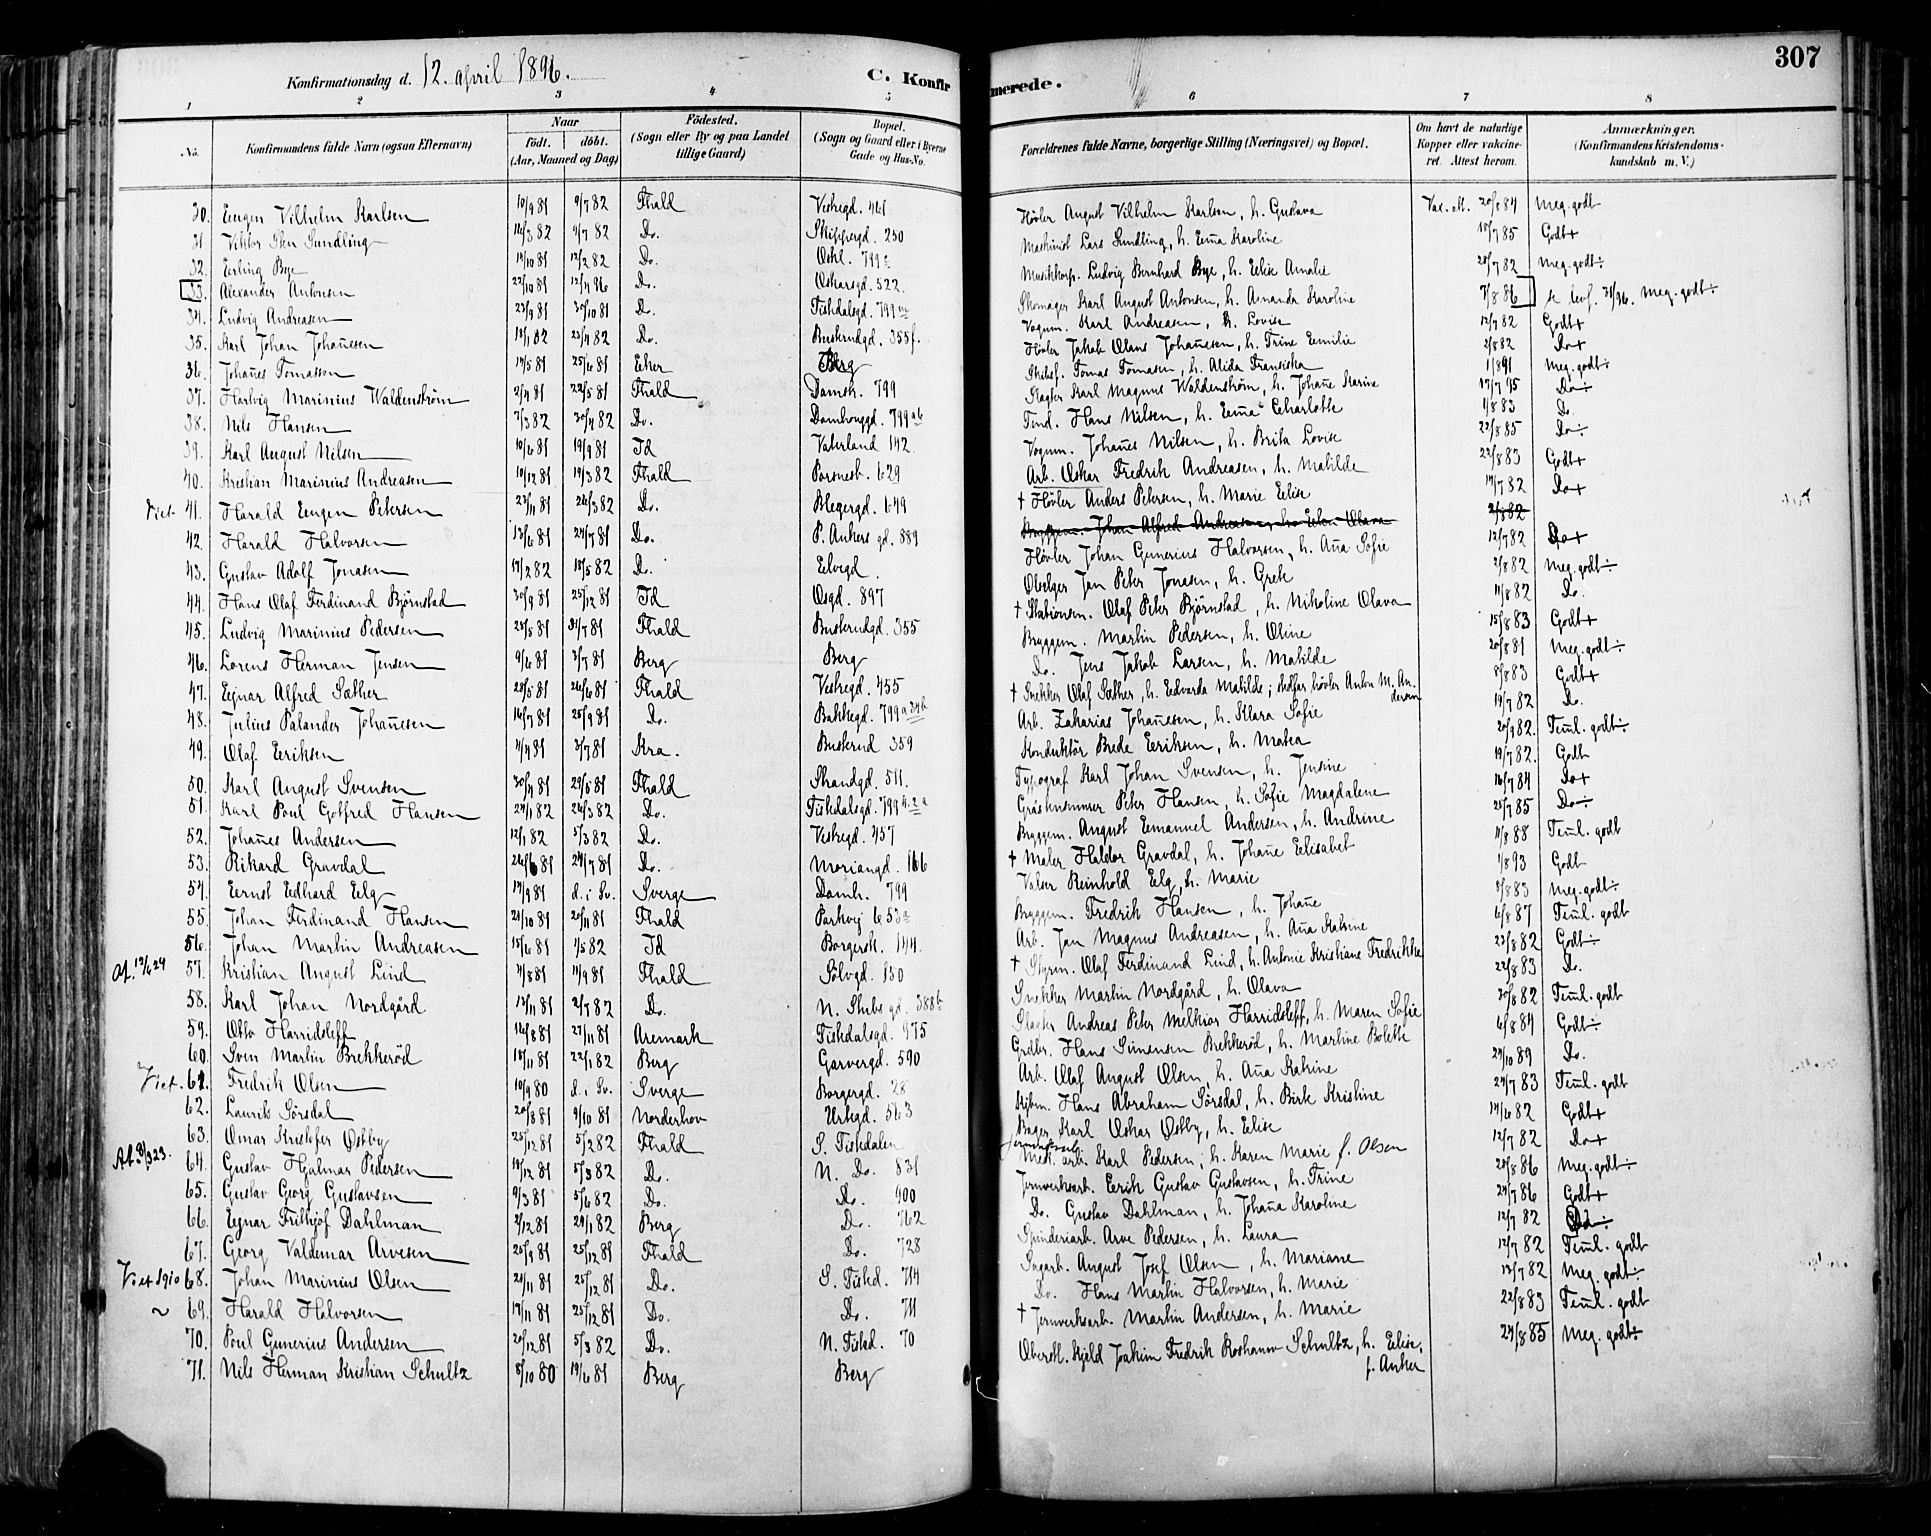 307
Konfirmationsdag d. 12. april 1896.
C. Konfirmerede.
1 2 3 4 5 6 7 8
No. Konfirmandens fulde Navn (ogsaa Efternavn) Naar født. døbt. (Aar, Maaned og Dag) Fødested. (Sogn eller By og paa Landet tillige Gaard) Bopæl. (Sogn og Gaard eller i Byerne Gade og Hus-No. Forældrenes fulde Navne, borgerlige Stilling (Næringsvei) og Bopæl. Om havt de naturlige Kopper eller vakcineret. Attest herom. Anmærkninger. (Konfirmandens Kristendomskundskab m. V.)
30. Eugen Vilhelm Karlsen 10/9 81 9/7 82 Fhald Vestregd. 461 Høvler August Vilhelm Karlsen, h. Gustava Vac. att. 20/8 84 Meg. godt
31. Viktor Sten Sundling 14/3 82 9/7 82 Do. Skippergd. 250 Maskinist Lars Sundling, h. Emma Karoline 18/7 85 Godt+
32. Erling Bye 14/10 81 12/2 82 Do. 799 Musikkorp. Ludvig Bernhard Bye, h. Elise Amalie 28/7 82 Meg. godt÷
33. Alexander Antonsen 22/10 81 Do. Oskarsgd. 522. Skomager Karl August Antonsen, h. Amanda Karoline 7/8 86 Meg. godt÷
34. Ludvig Andreasen 23/9 81 30/10 81 Do. Fiskdalsgd. 799 Vognm. Karl Andreasen, h. Lovise 12/7 82 Godt+
35. Karl Johan Johannesen 18/1 82 23/4 82 Do. Buskrudgd. 355f. Høvler Jakob Olaus Johannesen, h. Trine Emilie 2/8 82 Do+
36. Johannes Tomassen 14/5 81 25/6 81 Eker Berg Skibsf. Tomas Tomasen, h. Alida Fransiska 1/8 91 Meg. godt÷
37. Hartvig Marinius Waldenstrøm 2/4 81 22/5 81 Fhald Damst. 799 Slagter Karl Magnus Waldenstrøm, h. Johanne Karine 17/7 95 Do÷
38. Nils Hansen 7/3 82 30/4 82 Do. Damhauggd. 799ab Tind. Hans Nilsen, h. Emma Charlotte 1/8 83 Do
39. Karl August Nilsen 10/6 81 19/9 81 Id Vaterland 142 Vognm. Johannes Nilsen, h. Brita Lovise 22/8 85 Do÷
40. Kristian Marinius Andreasen 10/12 81 19/3 82 Fhald 629 Arb. Oskar Fredrik Andreasen, h. Matilde 22/8 83 Godt+
Viet. 41. Harald Eugen Petersen 23/11 81 26/3 82 Do. Blegergd. 649 † Høvler Anders Petersen, h. Marie Elise 14/7 82 Do+
Byggem. Johan Alfred Andreasen, h. Olava 2/8 82
42. Harald Halvorsen 13/6 81 24/7 81 Do. P. Ankers gd. 889 Høvler Johan Gunerius Halvorsen, h. Anna Sofie 12/7 82 Do+
43. Gustav Adolf Jonasen 17/2 82 18/5 82 Do. Elvegd. Jan Peter Jonasen, h. Grete 2/8 82 Meg. godt÷
44. Hans Olaf Ferdinand Bjørnstad 30/9 81 25/12 81 Id Osgd. 897 † Stationsm. Olaf Peter Bjørnstad, h. Nikoline Olava 11/8 82 Do.
45. Ludvig Marinius Pedersen 28/5 81 31/7 81 Fhald Buskrudgd. 355 Byggem. Martin Pedersen, h. Oline 15/8 83 Godt+
46. Lorens Herman Jensen 9/6 81 3/7 81 Berg Berg Do. Jens Jakob Larsen, h. Matilde 20/8 81 Meg. godt÷
47. Ejnar Alfred Sæther 28/5 81 26/6 81 Fhald Vestregd. 455 † Snekker Olaf Sæther, h. Edvarda Matilde; stedfar høvler Anton M. Andersen 8/8 83 Godt+
48. Julius Palander Johannesen 16/7 81 25/9 81 Do. Bakkegd. 799 Arb. Zakarias Johannesen, h. Klara Sofie 19/7 82 Do.
49. Olaf Eeriksen 4/4 81 3/7 81 Kra. Buskrud 359 Konduktør Brede Eeriksen, h. Matea 20/9 82. Teml. godt÷
50. Karl August Svensen 30/4 81 29/5 81 Fhald Strandgd. 511. Typograf Karl Johan Svensen, h. Jensine 19/7 82. Godt
51. Karl Poul Gotfred Hansen 24/1 82 26/3 82 Do. Fiskdalsgd. 799 Peter Hansen, h. Sofie Magdalene 16/7 84 Do+
52. Johannes Andersen 12/1 82 5/3 82 Do. Vestregd. 457 Byggem. August Emanuel Andersen, h. Andrine 25/7 85 Do÷
53. Rikard Gravdal 26/6 81 24/7 81 Do. Moriangd. 166 † Maler Haldor Gravdal, h. Johanne Elisabet 11/8 88 Teml. godt
54. Ernst Edhard Elg 14/9 81 d. i Sv. Sverge Damh. 799 Valser Reinhold Elg, h. Marie 1/8 93 Godt
55. Johan Ferdinand Hansen 21/10 81 20/11 81 Fhald Parkvej 653a Byggem. Fredrik Hansen, h. Johanne 8/8 83 Meg. godt÷
56. Johan Martin Andreasen 15/6 81 1/5 82 Id Borgersk. 144. Arb. Jan Magnus Andreasen, h. Anna Katrine 6/8 87 Teml. godt
57. Kristian August Lind 4/8 81 11/9 81 Fhald Sølvgd. 150 † Styrm. Olaf Ferdinand Lind, h. Antonie Kristiane Fredrikke 23/8 82 Godt÷
58. Karl Johan Nordgård 13/11 81 2/7 82 Do. N. Skibs gd. 388b Snekker Martin Nordgård, h. Olava 22/8 83 Do.
59. Otto Harridsleff 16/8 81 27/11 81 Aremark Fiskdalsgd. 975 Slagter Andreas Peter Melkior Harridsleff, h. Maren Sofie 30/8 82 Teml. godt
60. Sven Martin Brekkerød 18/11 81 22/1 82 Berg Garvergd. 590 Grdbr. Hans Simensen Brekkerød, h. Martine Bolette 6/8 84 Godt÷
Viet. 61. Fredrik Olsen 10/9 80 d. i Sv. Sverge Borgergd. 28 Arb. Olaf August Olsen, h. Anna Katrine 24/10 89 Do.
62. Laurits Sørsdal 20/8 81 9/10 81 Norderhov Urtegd. 563 Kjbm. Hans Abraham Sørsdal, h. Birte Kristine 24/7 83 Teml. godt
63. Omar Kristofer Østby 25/12 81 5/2 82 Fhald S. Tistedalen Bager Karl Oskar Østby, h. Elise 14/6 82 Godt+
64. Gustav Hjalmar Pedersen 18/12 81 5/3 82 Do. N. Do. 831 Mek. arb. Karl Pedersen, h. Karen Marie f. Olsen 12/7 82 Do+
65. Gustav Georg Gustavsen 9/3 81 5/6 82 Do. Do. 900 Jernverksarb. Eerik Gustav Gustavsen, h. Trine 20/8 86 Meg. godt÷
66. Ejnar Fritkjof Dahlman 2/12 81 29/1 82 Berg Do. 762 Do. Gustav Dahlman, h. Johanna Karoline 24/7 86 Godt+
67. Georg Valdemar Arvesen 25/9 81 25/12 81 Fhald Do. 728 Spinderiarb. Arve Pedersen, h. Laura 12/7 82
Viet 1910 68. Johan Marinius Olsen 21/11 81 25/12 81 Do. S. Tisted. 714 Sagarb. August Josef Olsen, h. Mariane 12/7 82 Teml. godt
~ 69. Harald Halvorsen 17/11 81 25/12 81 Do. Do. 711 Do. Hans Martin Halvorsen, h. Marie 12/7 82 Meg. godt÷
70. Poul Gunerius Andersen 20/12 81 5/3 82 Do. N. Tisted. 70 † Jernverksarb. Martin Andersen, h. Marie 22/8 83 Teml. godt
71. Nils Herman Kristian Schultz 8/10 80 19/6 81 Berg Berg Oberstl. Kjeld Joakim Fredrik Schultz, h. Elise, f. Anker 24/8 85 Meg. godt÷